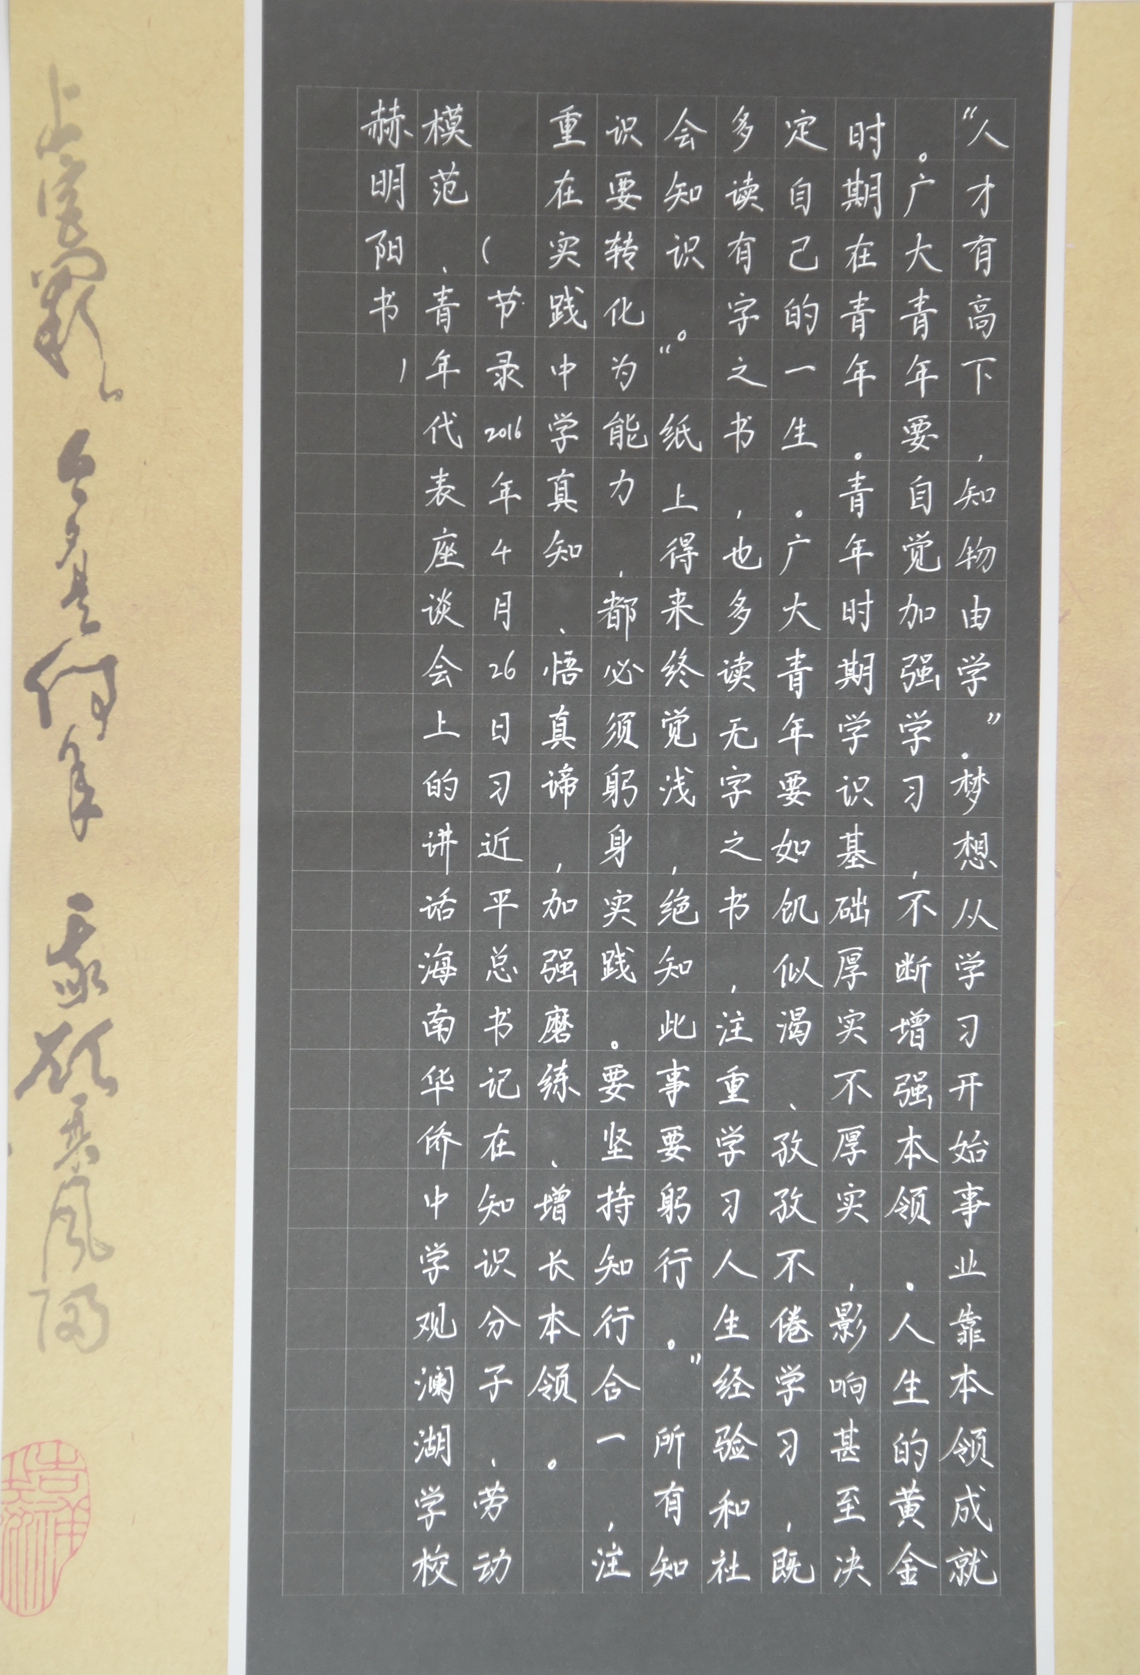 “人才有高下，知物由学”。梦想从学习开始事业靠本领成就
。广大青年要自觉加强学习，不断增强本领。人生的黄金
时期在青年。青年时期学识基础厚实不厚实，影响甚至决
定自己的一生。广大青年要如饥似渴、孜孜不倦学习，既
多读有字之书，也多读无字之书，注重学习人生经验和社
会知识。“纸上得来终觉浅，绝知此事要躬行。”所有知
识要转化为能力，都必须躬身实践。要坚持知行合一，注
重在实践中学真知、悟真谛，加强磨练、增长本领。
（节录2016年4月26日习近平总书记在知识分子、劳动
模范、青年代表座谈会上的讲话海南华侨中学观澜湖学校
赫明阳书）